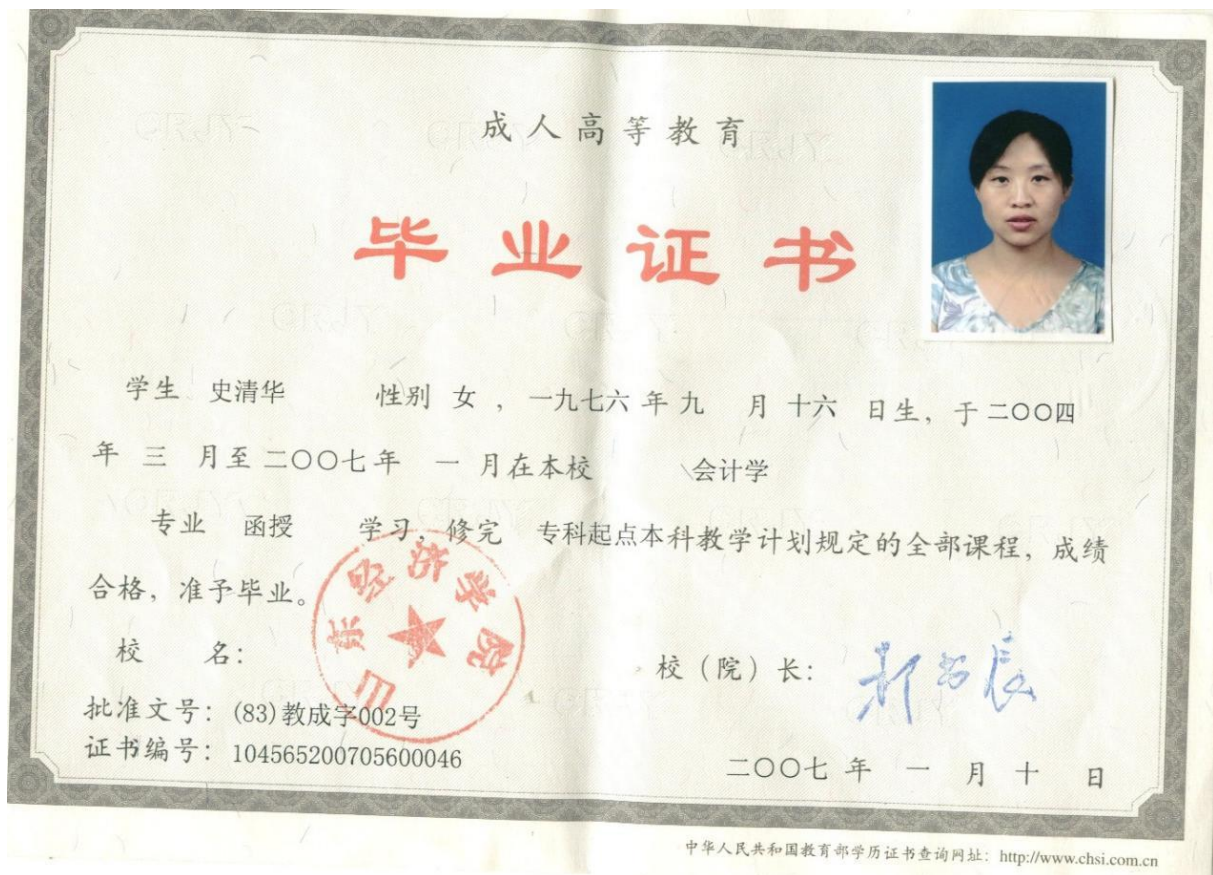 成人高等教育
毕业证书
学生 史清华 性别 女 ，一九七六 年 九 月 十六 日生，于 二〇〇四
年 三 月至 二〇〇七 年 一 月在本校 会计学
专业 函授 学习，修完 专科起点本科教学计划规定的全部课程，成绩
合格，准予毕业。
山东经济学院
校 名：
校（院）长：
批准文号：(83)教成字002号
证书编号：104565200705600046
二〇〇七 年 一 月 十 日
中华人民共和国教育部学历证书查询网址：http://www.chsi.com.cn